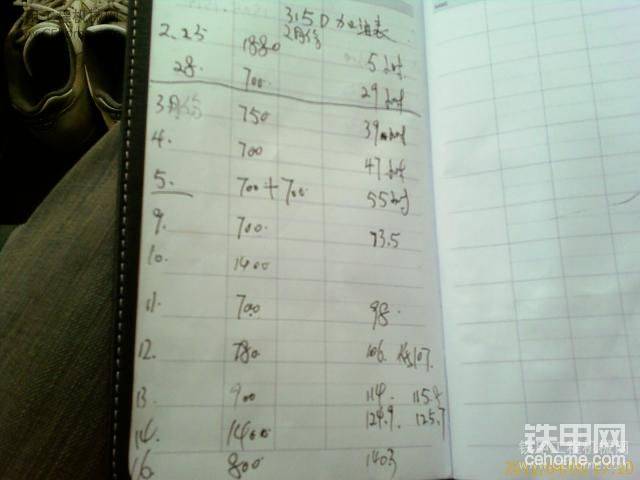 315D加油表
2月份
2.25 1880 5时
28. 700 29时
3月份 750 39时
4. 700 47时
5. 700+700 55时
9. 700 73.5
10. 1400
11. 700 98.
12. 780 106. 107.
13. 900 114. 115.8
124.9. 125.7
14. 1400
16. 800 140.3
铁甲网
cehome.com